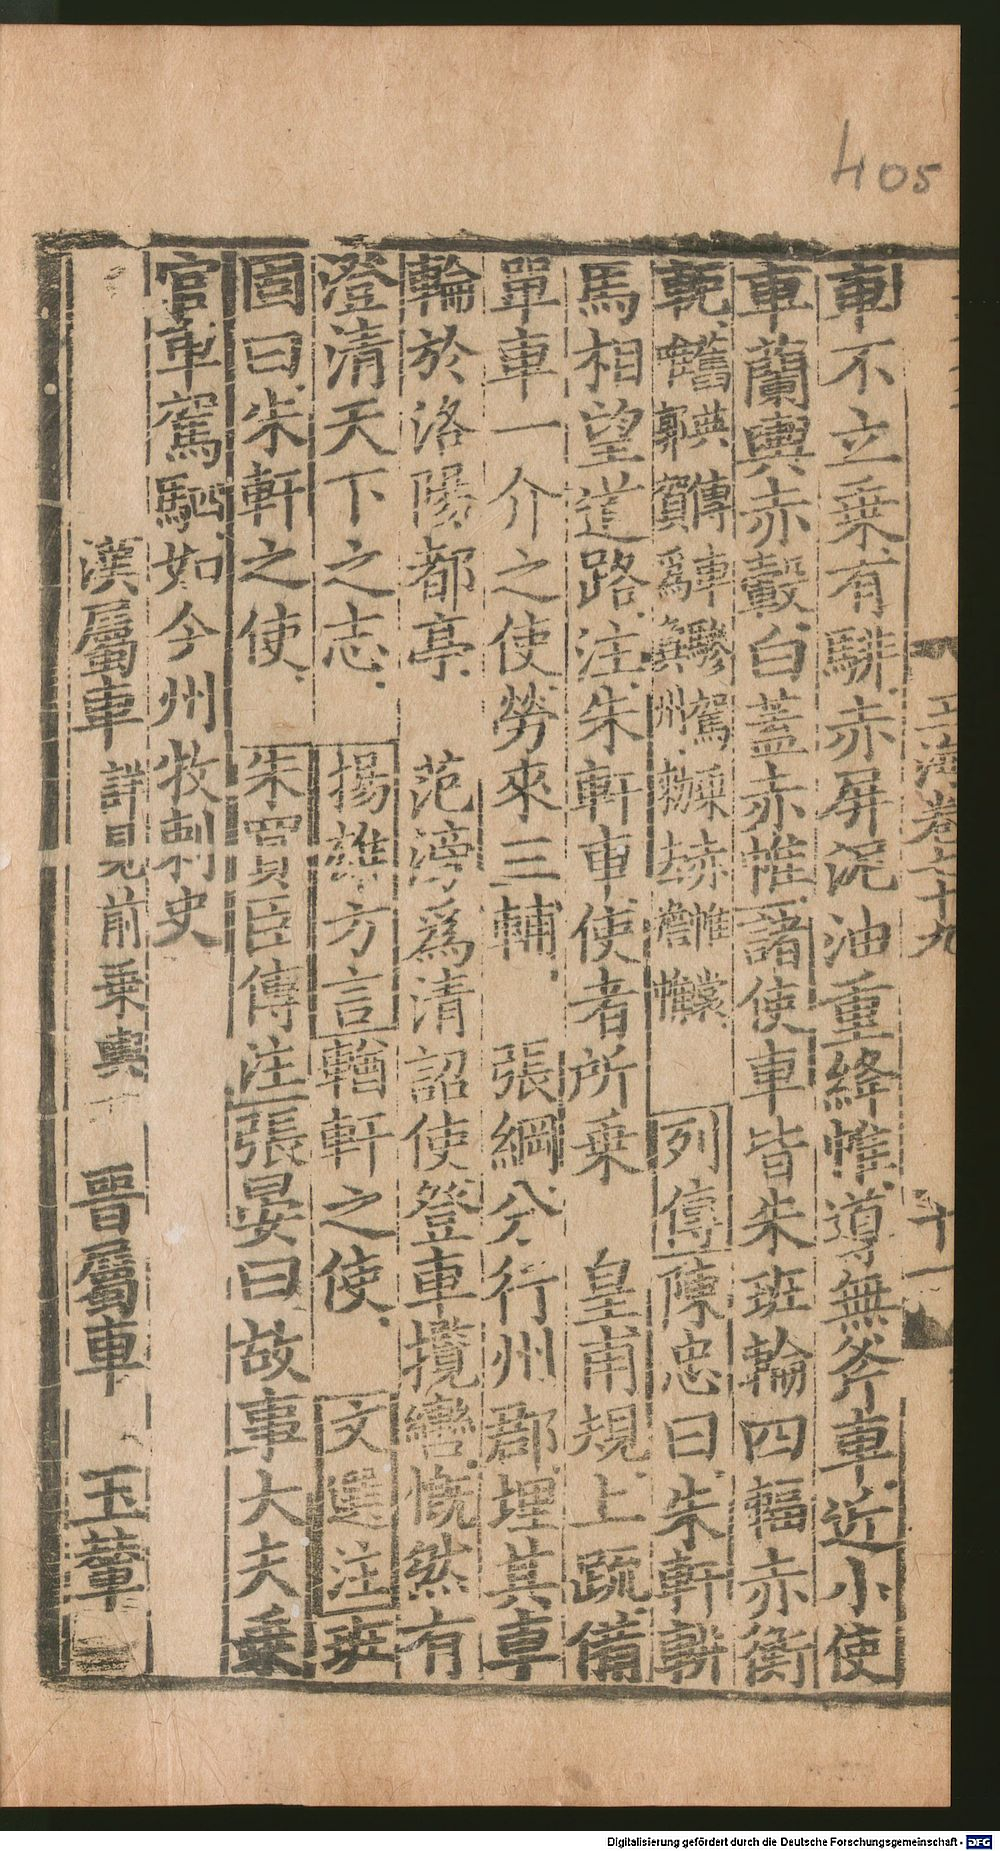 405
玉海卷七十九
十一
車不立乗有騑赤屏泥油重絳帷導無斧車近小使
車蘭輿赤轂白蓋赤帷諸使車皆朱班輪四輻赤衡
軛舊典傳車驂駕乗赤帷裳唯郭賀爲兾州敕去襜帷列傳陳忠曰朱軒軿
馬相望道路注朱軒車使者所乗 皇甫規上疏備
單車一介之使勞來三輔 張綱分行州郡埋其車
輪於洛陽都亭 范滂爲清詔使登車攬轡慨然有
澄清天下之志 揚雄方言輶軒之使 文選注班
固曰朱軒之使 朱買臣傳注張晏曰故事大夫乗
官車駕駟如今州牧刺史
漢屬車 詳見前乗輿 晉屬車 玉輦
Digitalisierung gefördert durch die Deutsche Forschungsgemeinschaft - DFG